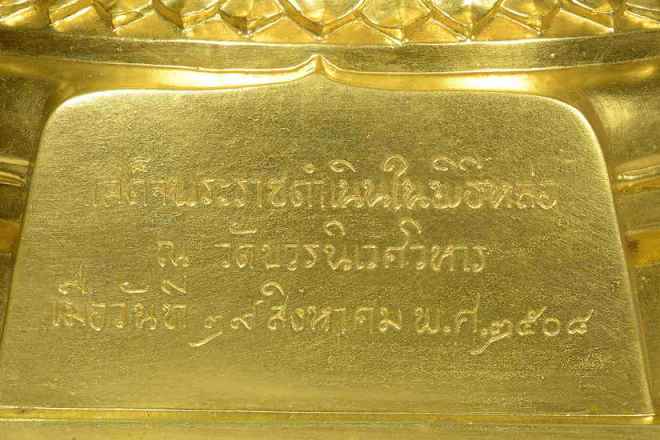 เสด็จพระราชดำเนินในพิธีหล่อ
ณ วัดบวรนิเวศวิหาร
เมื่อวันที่ ๒๙ สิงหาคม พ.ศ.๒๕๐๘